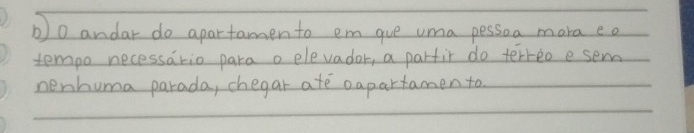 b) O andar do apartamento em que uma pessoa mora e o
tempo necessário para o elevador, a partir do térréo e sem
nenhuma parada, chegar até oapartamento.